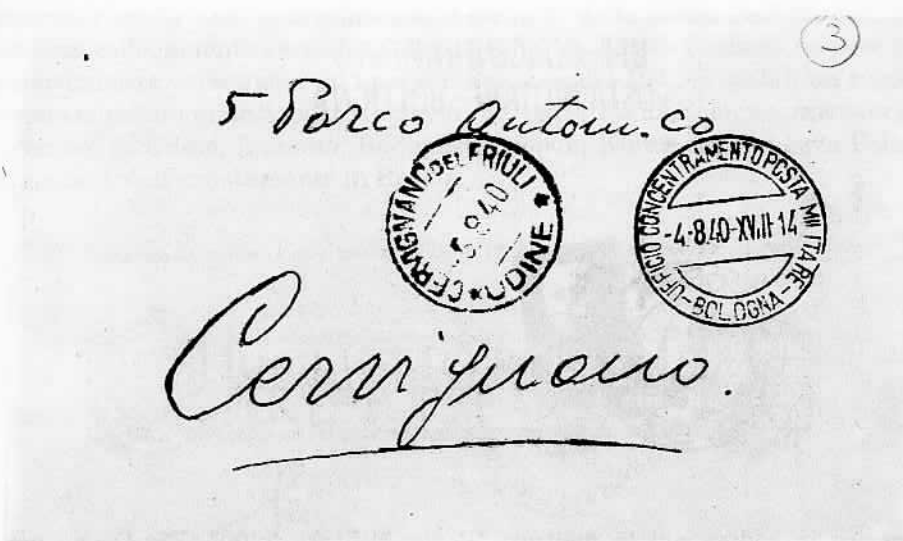 3
5 Parco Autom.co
CERVIGNANO DEL FRIULI * UDINE *
5 8 40
UFFICIO CONCENTRAMENTO POSTA MILITARE - BOLOGNA -
-4-8 40-XVIII 14
Cervignano.